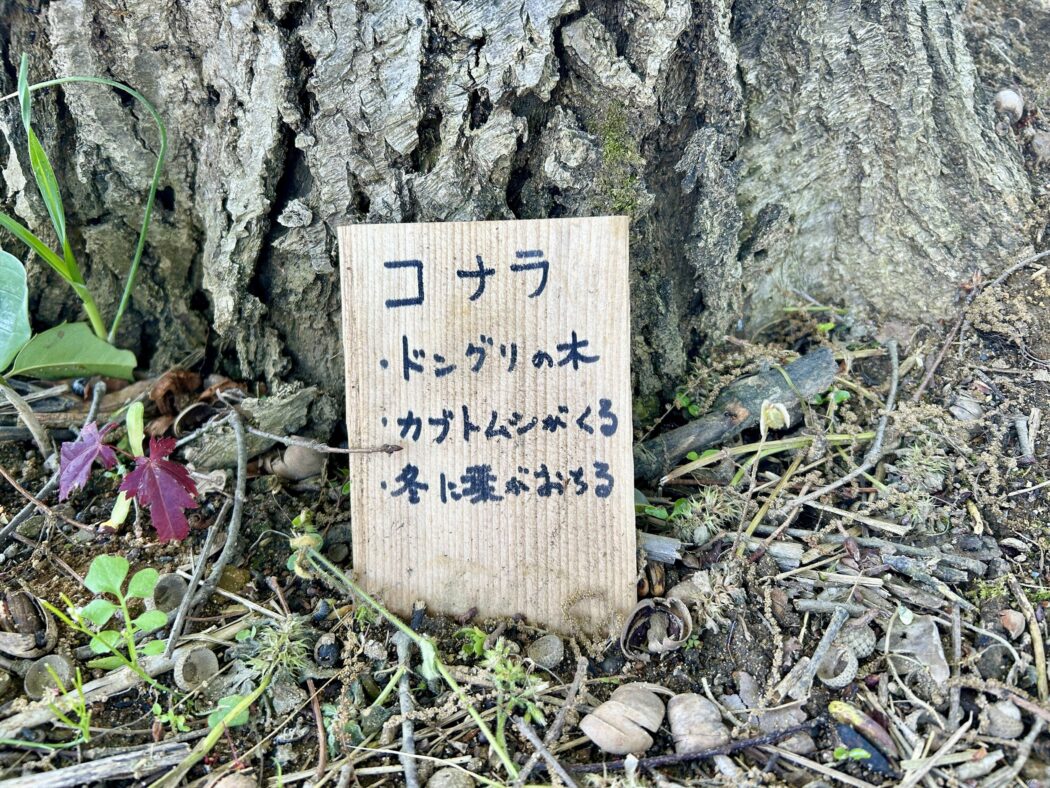 コナラ
・ドングリの木
・カブトムシがくる
・冬に葉がおちる